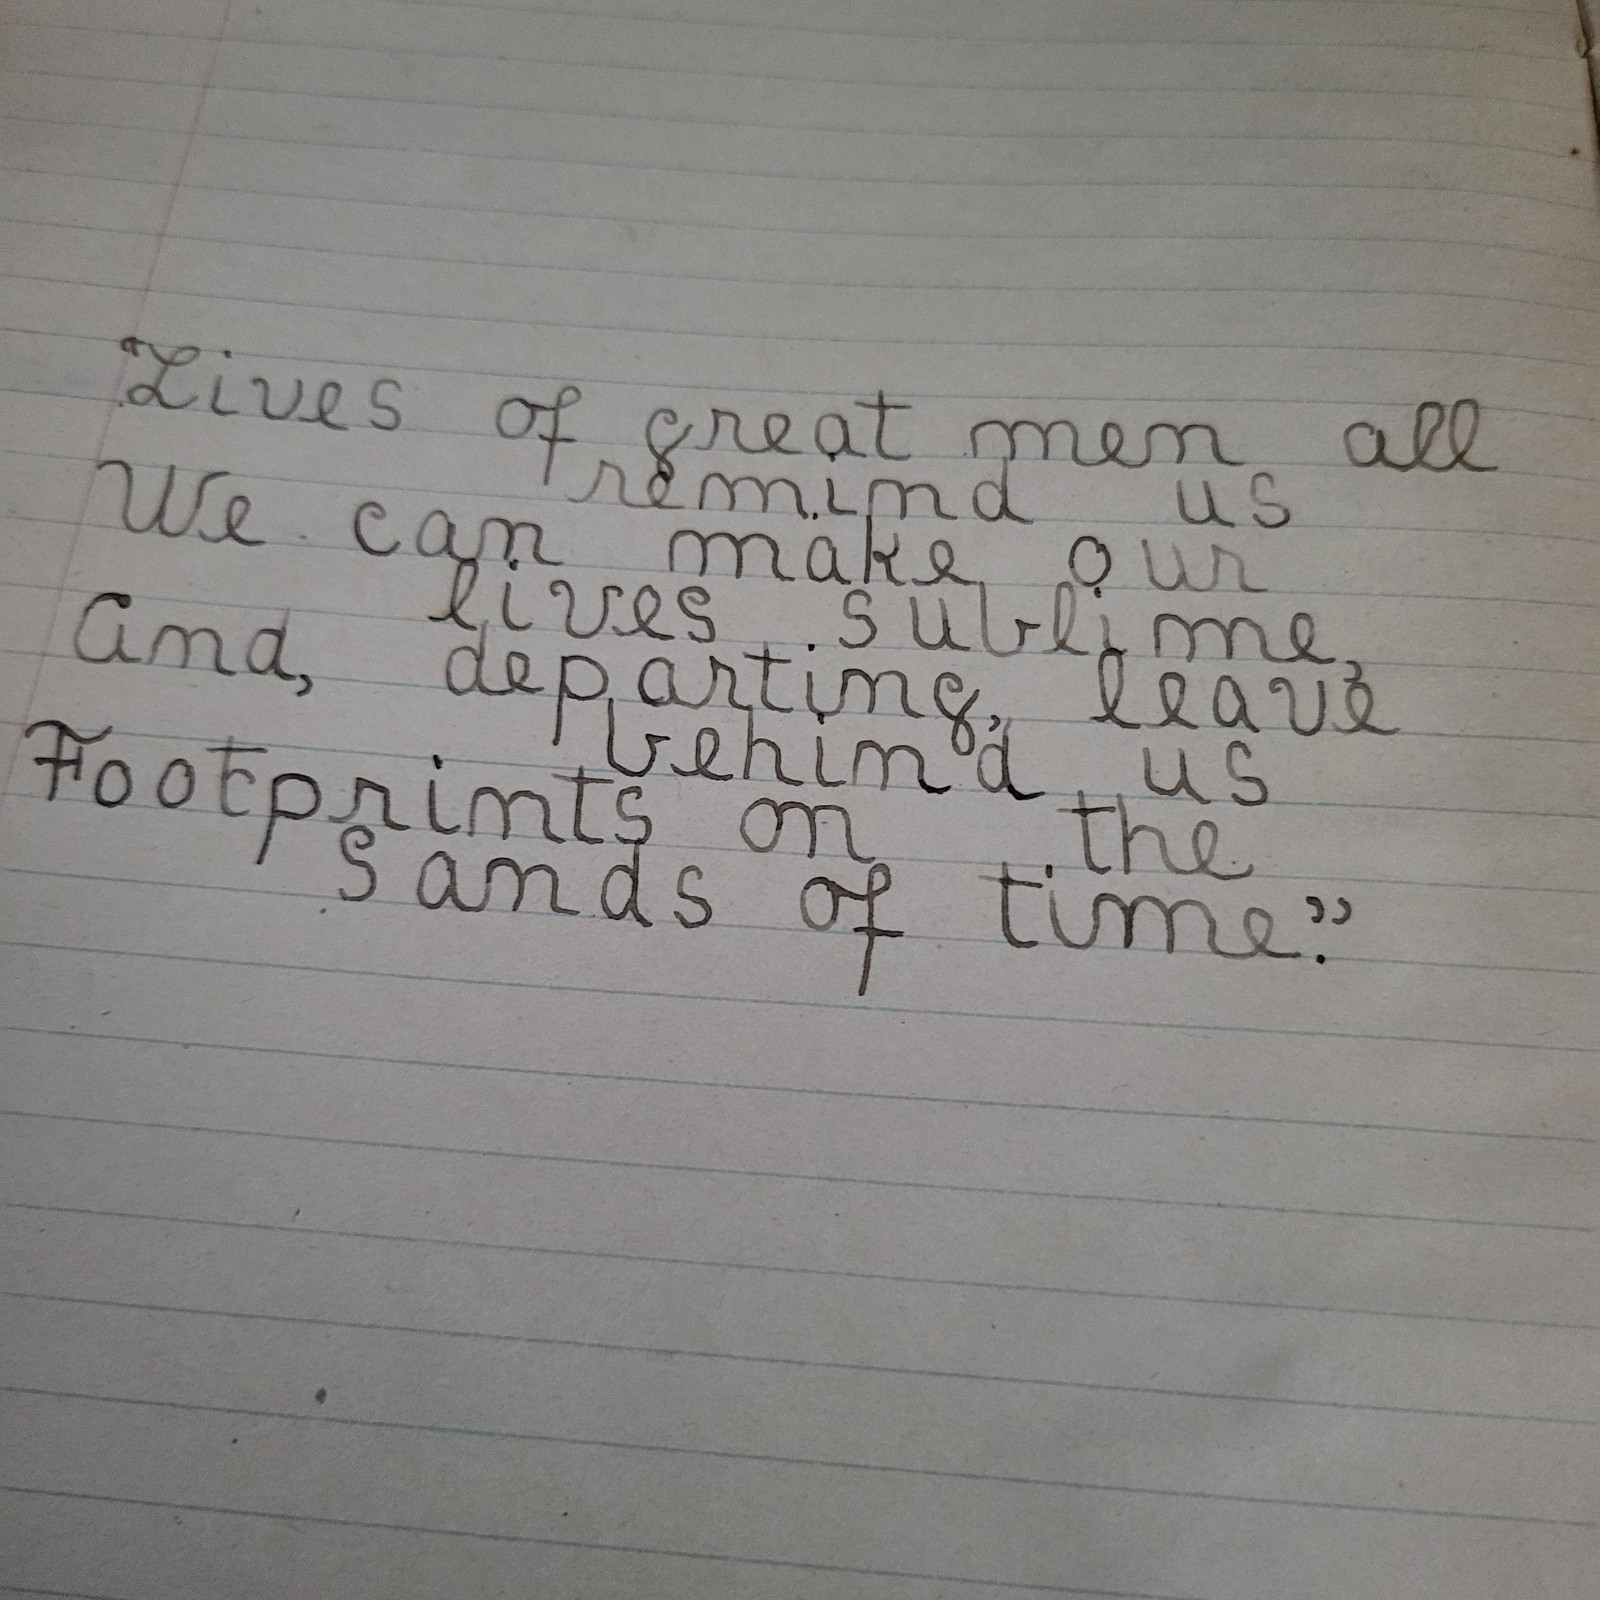 "Lives of great men all
remind us
We can make our
lives sublime,
And, departing, leave
behind us
Footprints on the
sands of time."